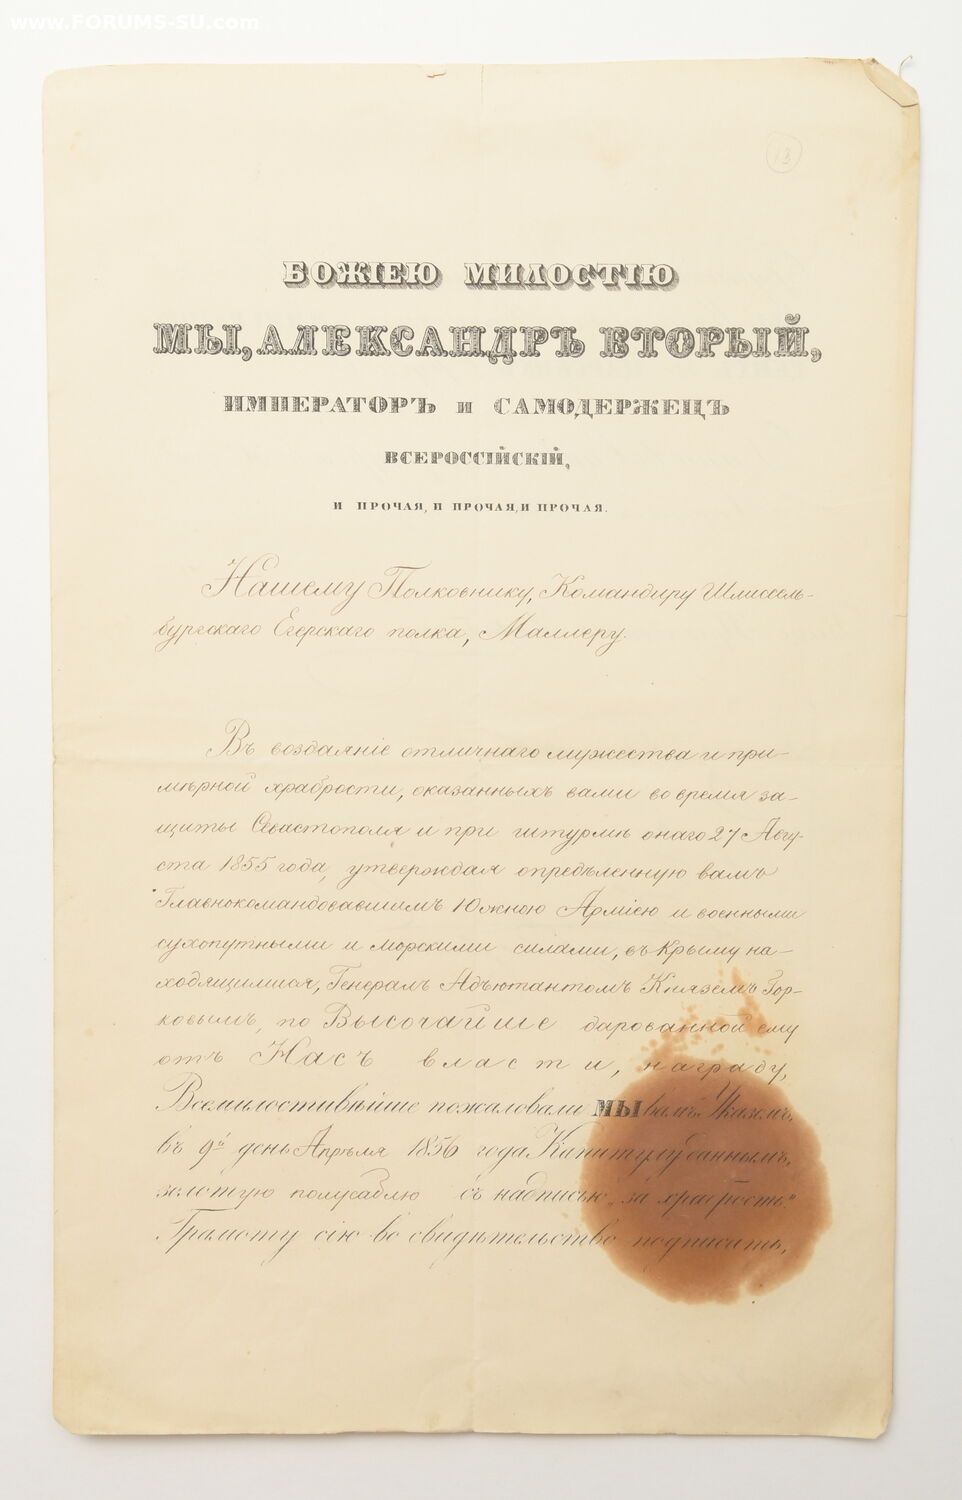 www.FORUMS-SU.com
13
БОЖІЕЮ МИЛОСТІЮ
МЫ, АЛЕКСАНДРЪ ВТОРЫЙ,
ИМПЕРАТОРЪ и САМОДЕРЖЕЦЪ
ВСЕРОССІЙСКІЙ,
И ПРОЧАЯ, И ПРОЧАЯ, И ПРОЧАЯ.
Нашему Полковнику, Командиру Шлиссель-
бургскаго Егерскаго полка, Маллеру.
Въ воздаяніе отличнаго мужества и при-
мѣрной храбрости, оказанныхъ вами во время за-
щиты Севастополя и при штурмѣ онаго 27 Авгу-
ста 1855 года, утверждая опредѣленную вамъ
Главнокомандовавшимъ Южною Арміею и военными
сухопутными и морскими силами, въ Крыму на-
ходящимися, Генералъ Адъютантомъ Княземъ Гор-
ковымъ, по Высочайше дарованной ему
отъ Насъ власти, награду,
Всемилостивѣйше пожаловали МЫ вамъ Указомъ,
въ 9й день Апрѣля 1856 года Капитулу даннымъ,
золотую полусаблю съ надписью „за храбрость“
Грамоту сію во свидѣтельство подписать,